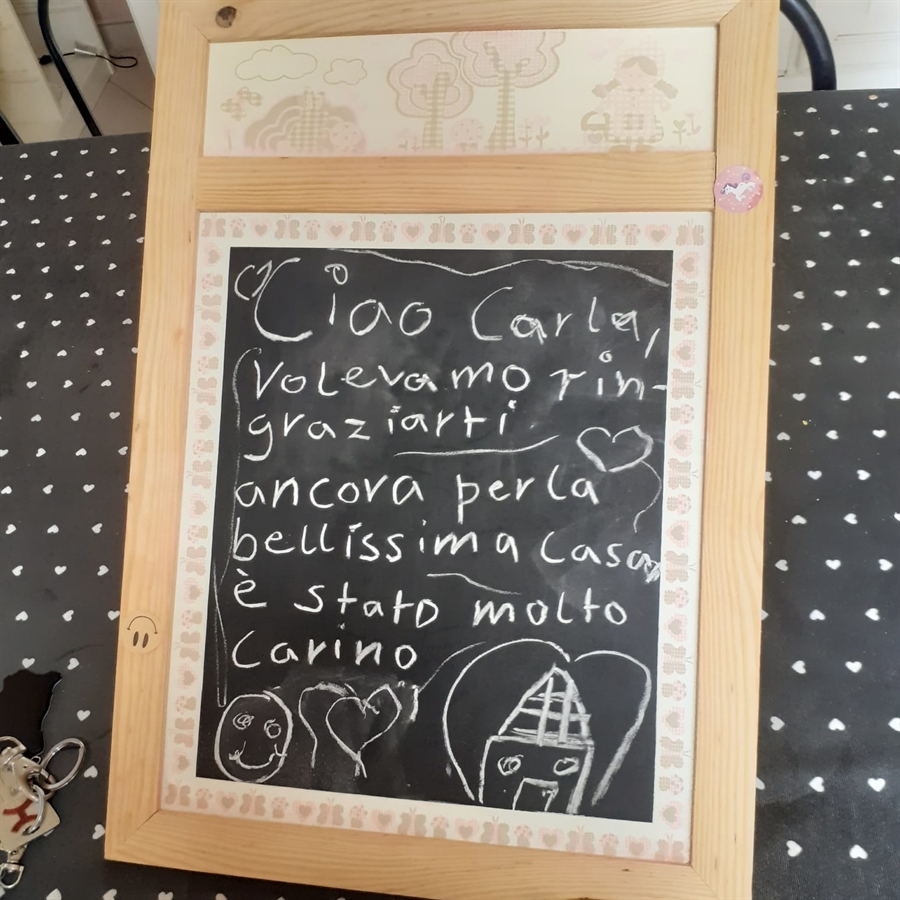 Ciao Carla,
Volevamo rin-
graziarti
ancora per la
bellissima casa
è stato molto
carino